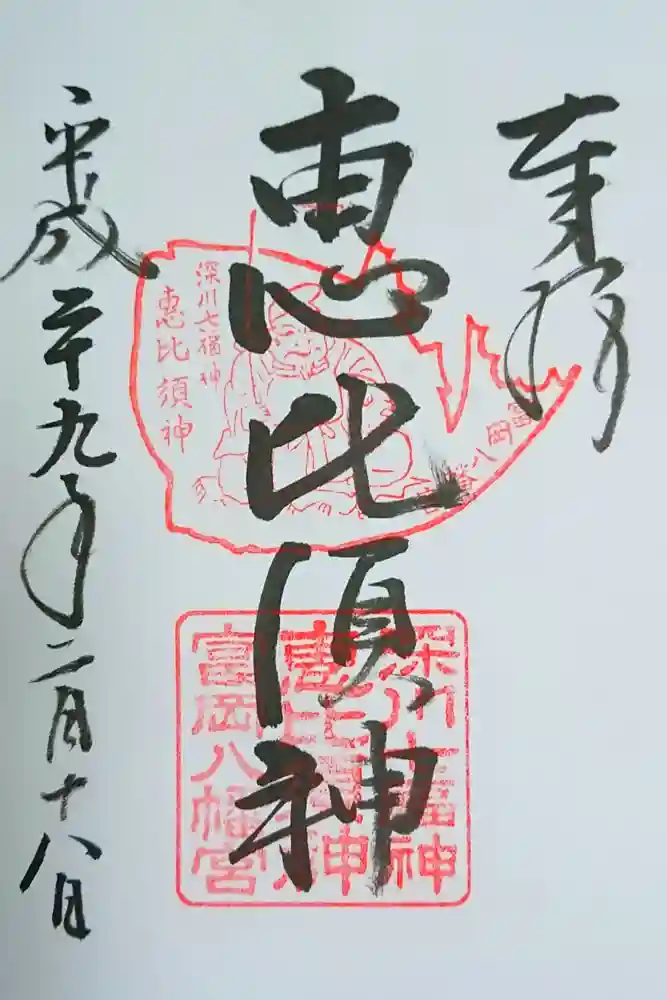 奉拝
恵比須神
平成二十九年二月十八日
深川七福神
恵比須神
富岡八幡宮
深川七福神
恵比須神
富岡八幡宮